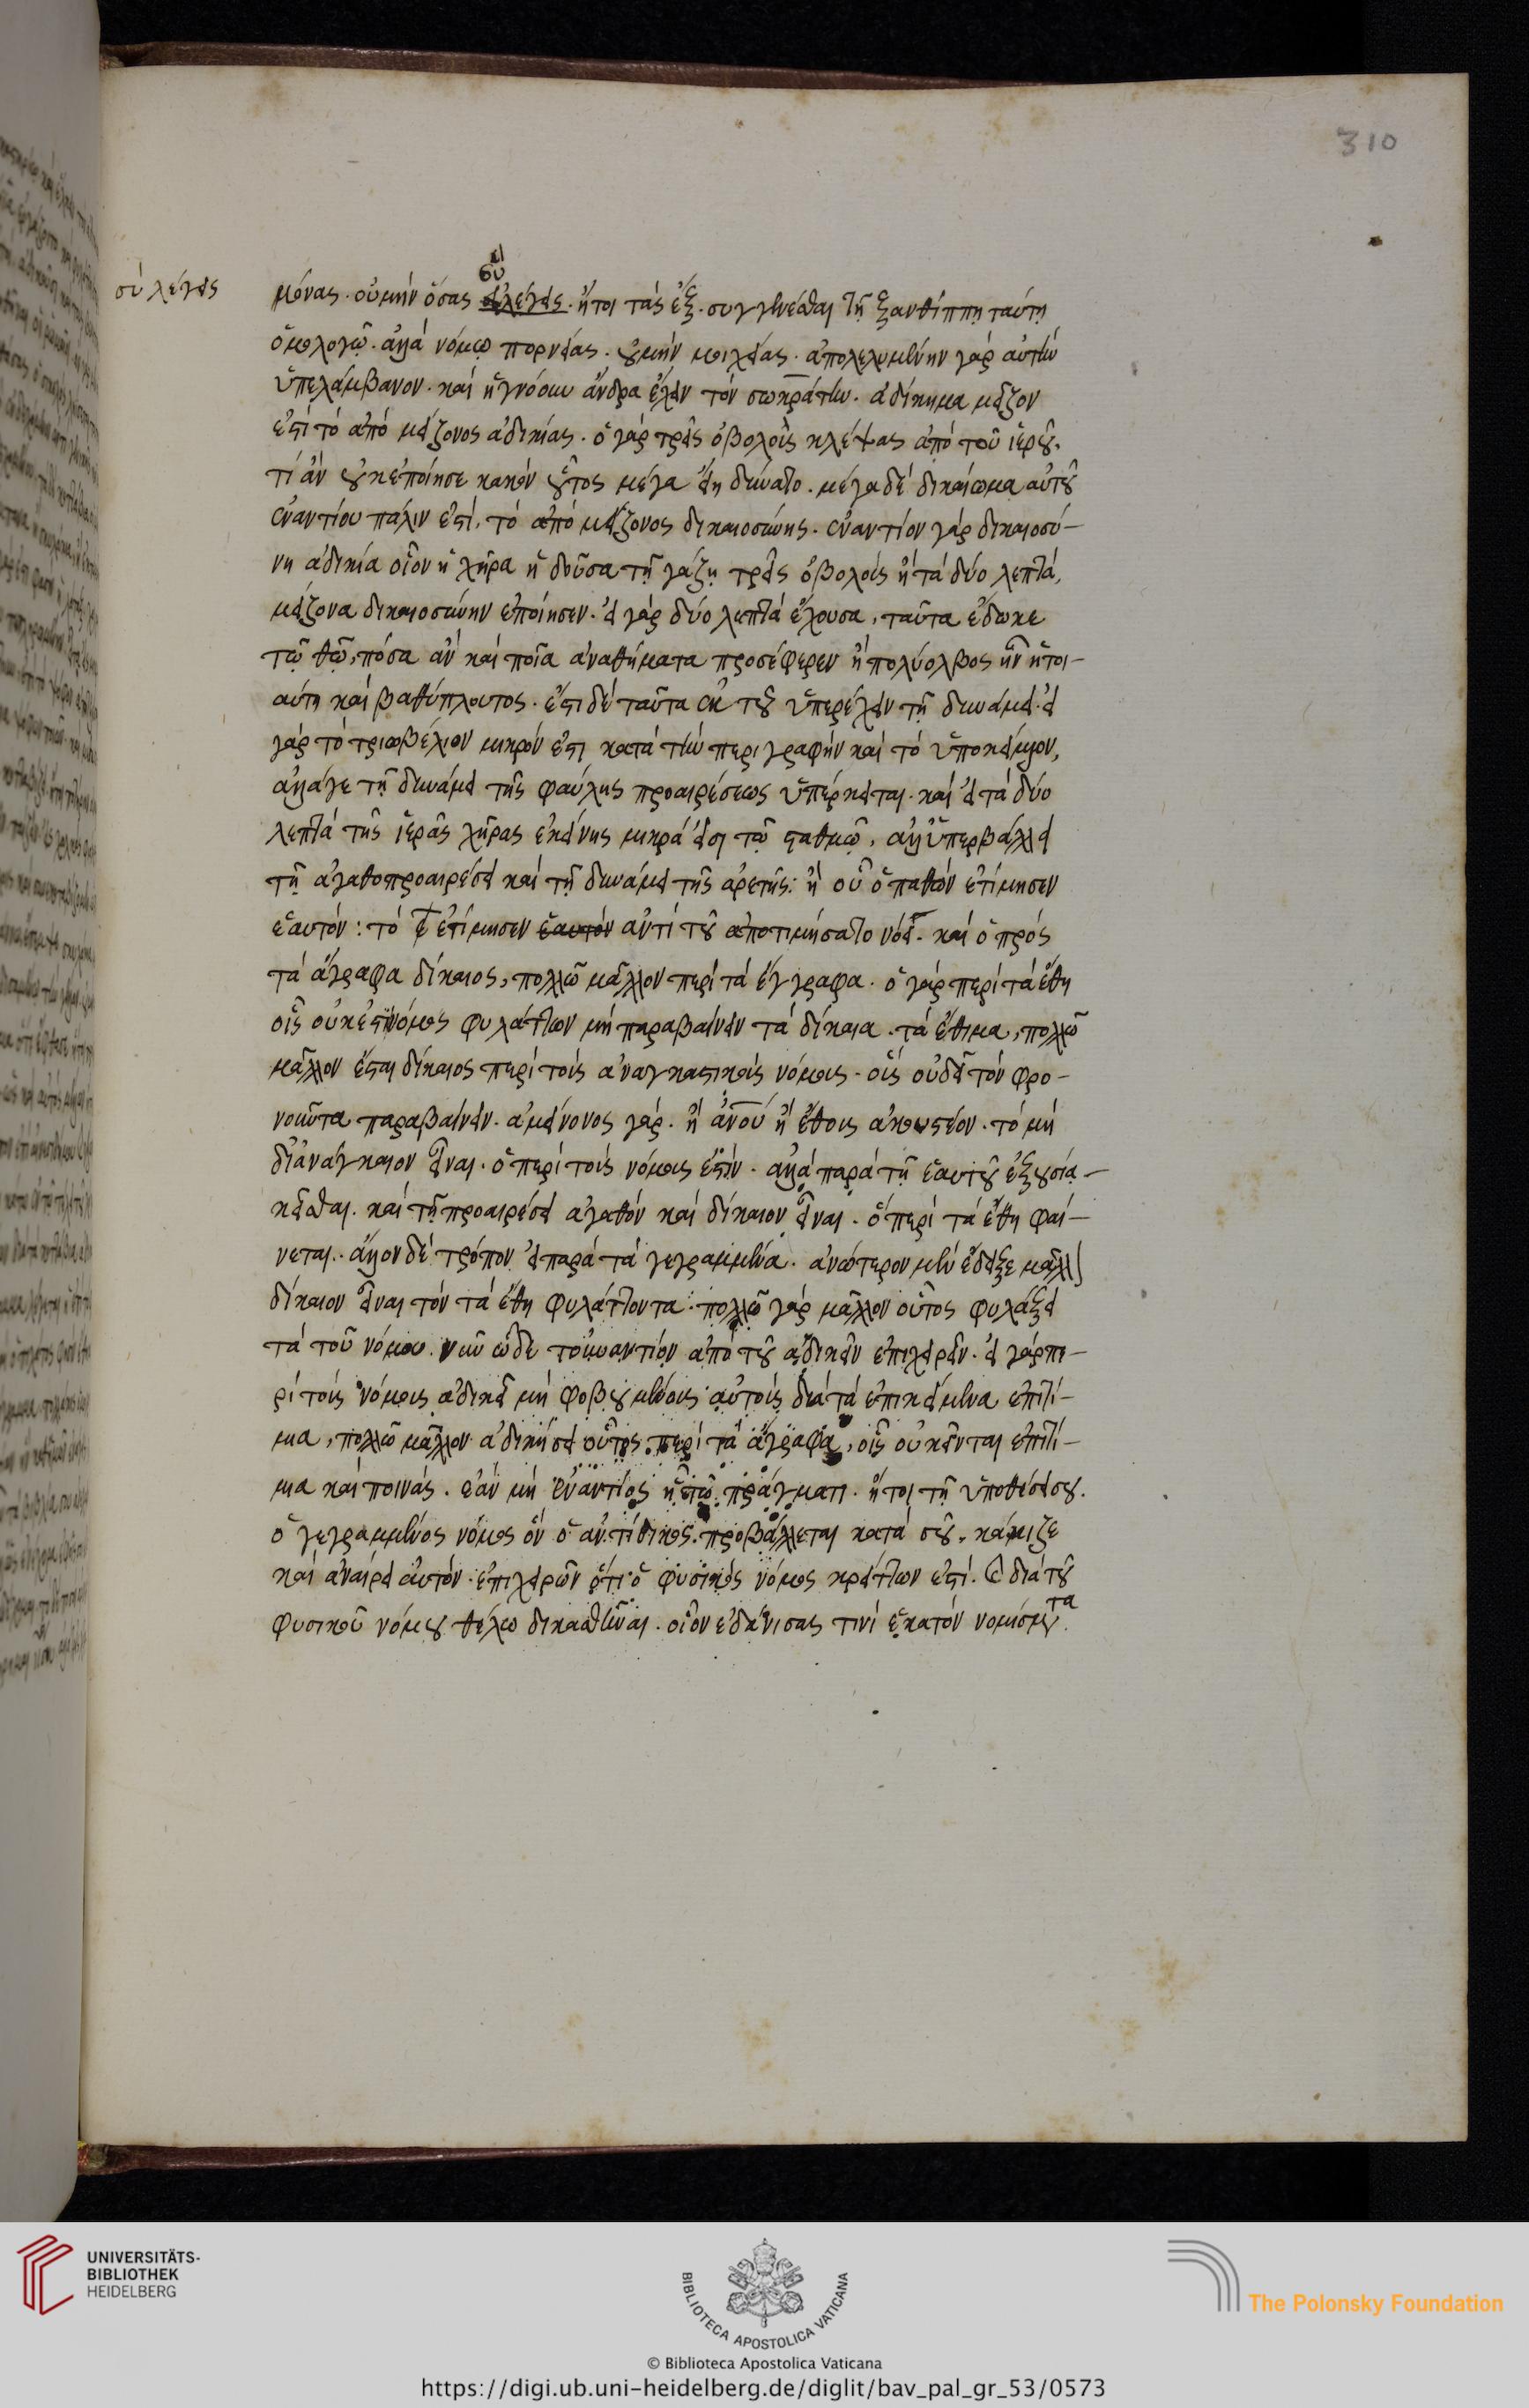 310
σὺ λέγεις
σὺ
μόνας. οὐ μὴν ὅσας λέγεις. ἤτοι τὰς ἕξ. συγγινέσθαι τῇ ξανθίππῃ ταύτῃ
ὁμολογῶ. ἀλλὰ νόμῳ πορνείας. οὐ μὴν μοιχείας. ἀπολελυμένην γὰρ αὐτὴν
ὑπελάμβανον. καὶ ἠγνόουν ἄνδρα ἔχειν τὸν σωκράτην. ἀδίκημα μεῖζον
ἐστὶ τὸ ἀπὸ μείζονος ἀδικίας. ὁ γὰρ τρεῖς ὀβολοὺς κλέψας ἀπὸ τοῦ ἱεροῦ.
τί ἂν οὐκ ἐποίησε κακὸν οὗτος μέγα εἴη δύναιτο. μέγα δὲ δικαίωμα αὐτοῦ
ἐναντίου πάλιν ἐστί, τὸ ἀπὸ μείζονος δικαιοσύνης. ἐναντίον γὰρ δικαιοσύ-
νη ἀδικία οἷον ἡ χήρα ἡ δοῦσα τῇ γάζῃ τρεῖς ὀβολοὺς ἢ τὰ δύο λεπτά,
μείζονα δικαιοσύνην ἐποίησεν. εἰ γὰρ δύο λεπτὰ ἔχουσα, ταῦτα ἔδωκε
τῷ θῶ, πόσα ἂν καὶ ποῖα ἀναθήματα προσέφερεν ἢ πολύολβος ἦν ἤτοι-
αύτη καὶ βαθύπλουτος. ἔστι δὲ ταῦτα ἐκ τοῦ ὑπερέχειν τῇ δυνάμει. εἰ
γὰρ τὸ τριωβέλιον μικρόν ἐστι κατὰ τὴν περιγραφὴν καὶ τὸ ὑποκείμενον,
ἀλλάγε τῇ δυνάμει τῆς φαύλης προαιρέσεως ὑπέρκειται. καὶ εἰ τὰ δύο
λεπτὰ τῆς ἱερᾶς χήρας ἐκείνης μικρὰ εἰσι τῷ σταθμῷ, ἀλλ' ὑπερβάλλει
τῇ ἀγαθοπροαιρέσει καὶ τῇ δυνάμει τῆς ἀρετῆς: ἢ οὗ ὁ παθὼν ἐτίμησεν
ἑαυτόν: τὸ ἐτίμησεν ἑαυτὸν ἀντὶ τοῦ ἀποτιμήσαιτο νόει. καὶ ὁ πρὸς
τὰ ἄγραφα δίκαιος, πολλῷ μᾶλλον περὶ τὰ ἔγγραφα. ὁ γὰρ περὶ τὰ ἔθη
οἷς οὐκ ἔστι νόμος φυλάττων μὴ παραβαίνειν τὰ δίκαια. τὰ ἔθιμα, πολλῷ
μᾶλλον ἔσται δίκαιος περὶ τοὺς ἀναγκαστικοὺς νόμους. οὓς οὐ δεῖ τὸν φρο-
νοῦντα παραβαίνειν. ἀμείνονος γάρ. ἢ ἀνού ἢ ἔθους ἀκουστέον. τὸ μὴ
δι' ἀναγκαῖον εἶναι. ὃ περὶ τοὺς νόμους ἐστίν. ἀλλὰ παρὰ τῇ ἑαυτοῦ ἐξουσίᾳ-
κεῖσθαι. καὶ τῇ προαιρέσει ἀγαθὸν καὶ δίκαιον εἶναι. ὃ περὶ τὰ ἔθη φαί-
νεται. ἄλλον δὲ τρόπον εἰ παρὰ τὰ γεγραμμένα. ἀνώτερον μὲν ἔδειξε μᾶλλ
δίκαιον εἶναι τὸν τὰ ἔθη φυλάττοντα. πολλῷ γὰρ μᾶλλον οὗτος φυλάξει
τὰ τοῦ νόμου. νῦν ὧδε τοὐναντίον ἀπὸ τοῦ ἀδικεῖν ἐπιχειρεῖν. εἰ γὰρ πε-
ρὶ τοὺς νόμους ἀδικεῖ μὴ φοβούμενος αὐτοὺς διὰ τὰ ἐπικείμενα ἐπιτί-
μια, πολλῷ μᾶλλον ἀδικήσει οὗτος περὶ τὰ ἄγραφα, οἷς οὐ κεῖνται ἐπιτί-
μια καὶ ποινάς. ἐὰν μὴ ἐναντίος ᾖ τῷ πράγματι. ἤτοι τῇ ὑποθέσει σου.
ὁ γεγραμμένος νόμος ὃν ὁ ἀντίδικος προβάλλεται κατὰ σοῦ. κάκιζε
καὶ ἀναίρει αὐτόν. ἐπιχειρῶν ὅτι ὁ φυσικὸς νόμος κρείττων ἐστί. διὰ τοῦ
φυσικοῦ νόμου θέλω δικασθῆναι. οἷον ἐδάνεισας τινὶ ἑκατὸν νομίσματα
UNIVERSITÄTS-
BIBLIOTHEK
HEIDELBERG
BIBLIOTECA APOSTOLICA VATICANA
The Polonsky Foundation
© Biblioteca Apostolica Vaticana
https://digi.ub.uni-heidelberg.de/diglit/bav_pal_gr_53/0573